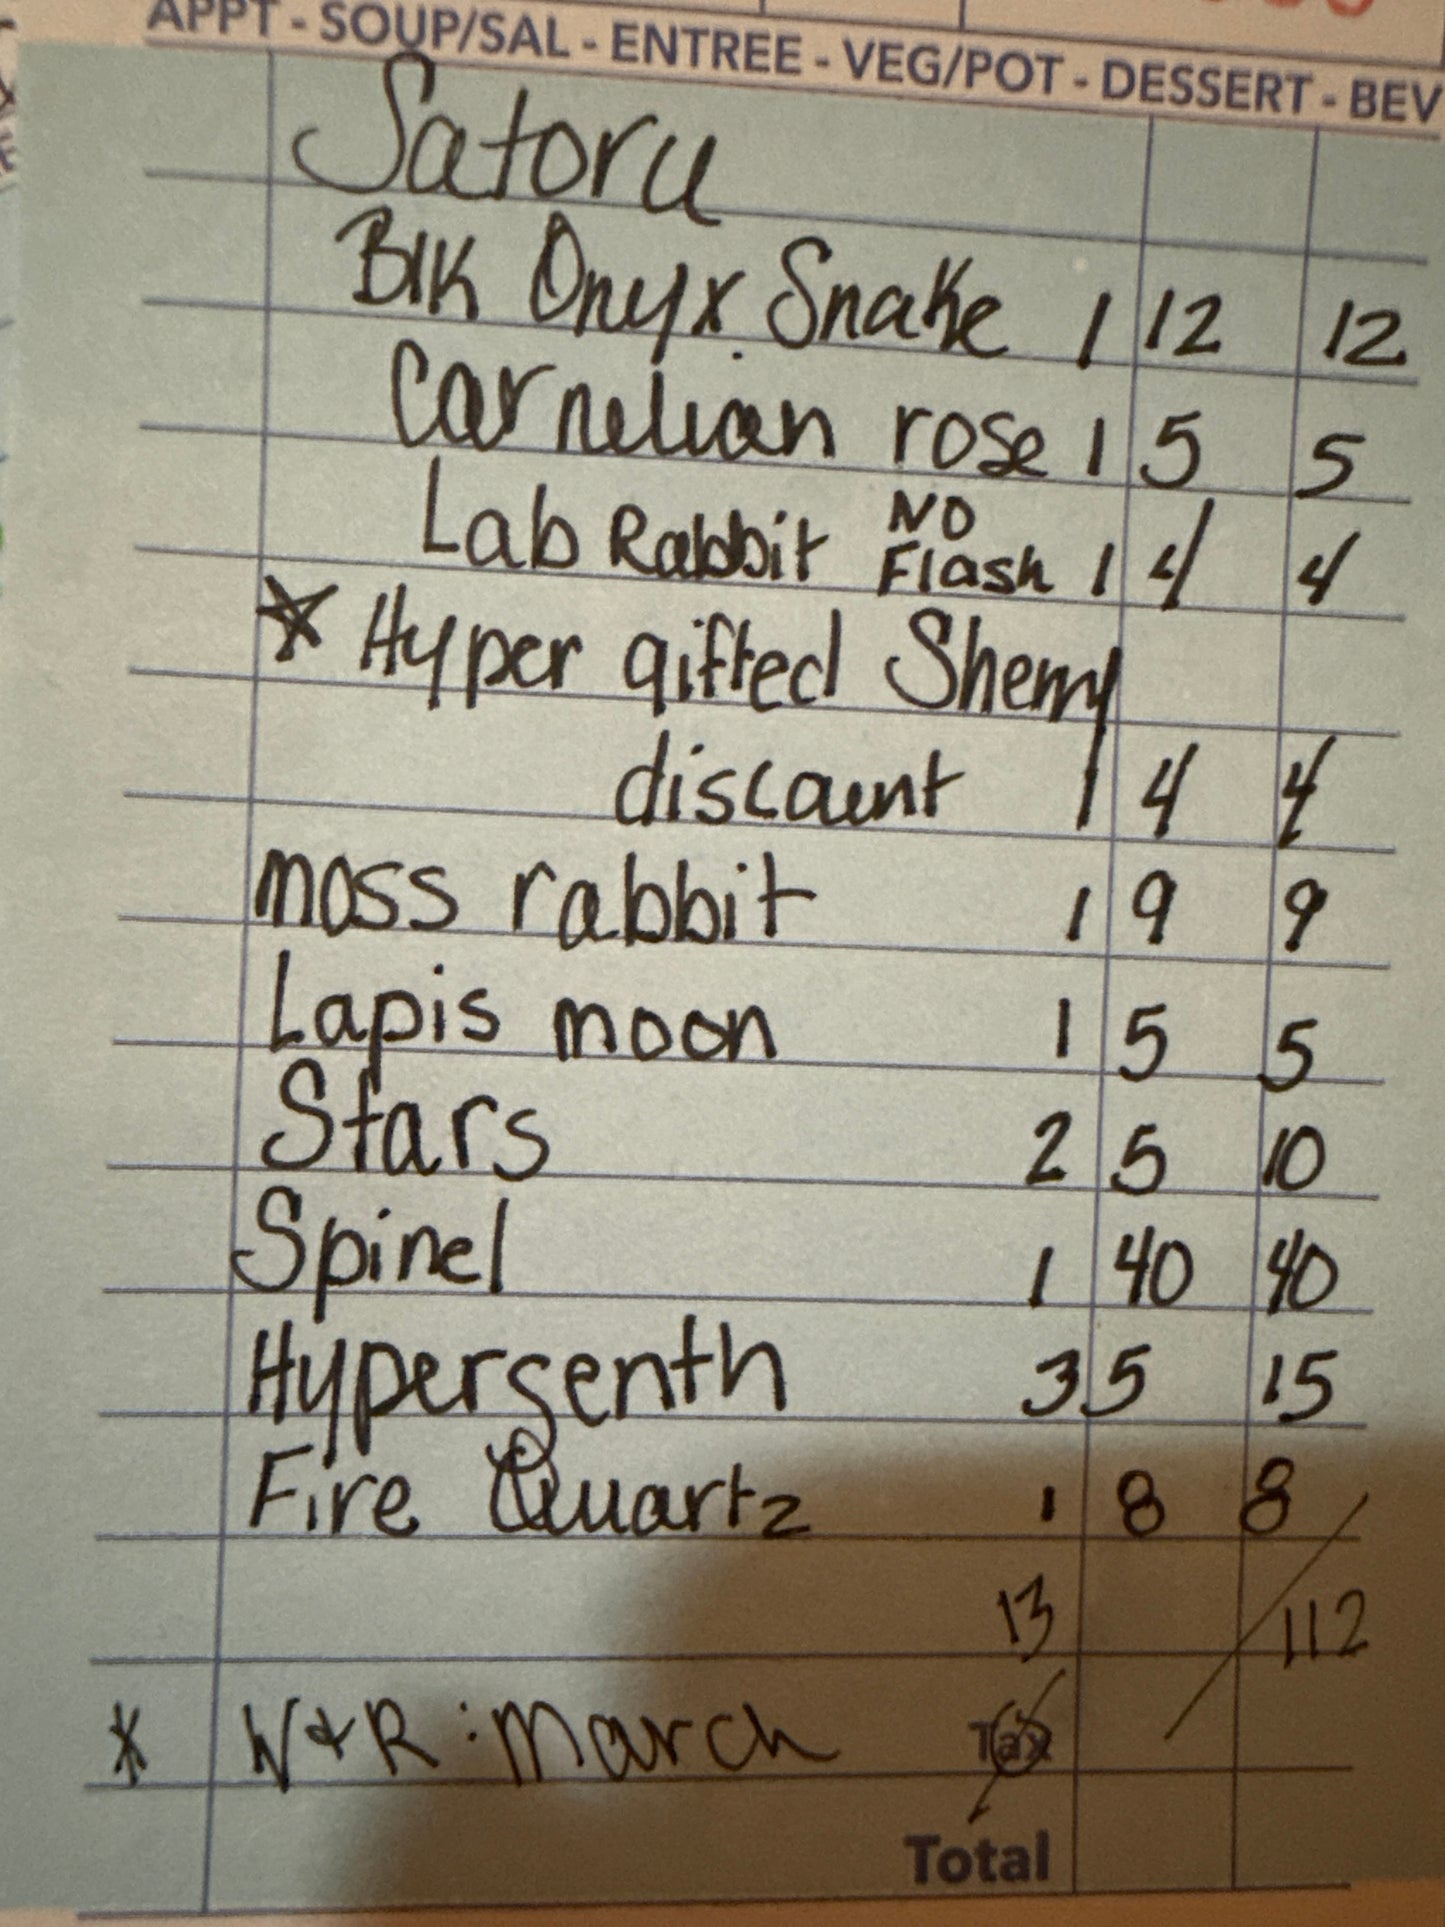 APPT - SOUP/SAL - ENTREE - VEG/POT - DESSERT - BEV
Satoru
Blk Onyx Snake 1 12 12
Carnelian rose 1 5 5
Lab Rabbit NO Flash 1 4 4
* Hyper gifted Sherry
discount 1 4 4
moss rabbit 1 9 9
Lapis moon 1 5 5
Stars 2 5 10
Spinel 1 40 40
Hypersenth 3 5 15
Fire Quartz 1 8 8
13 112
* W&R : March Tax
Total